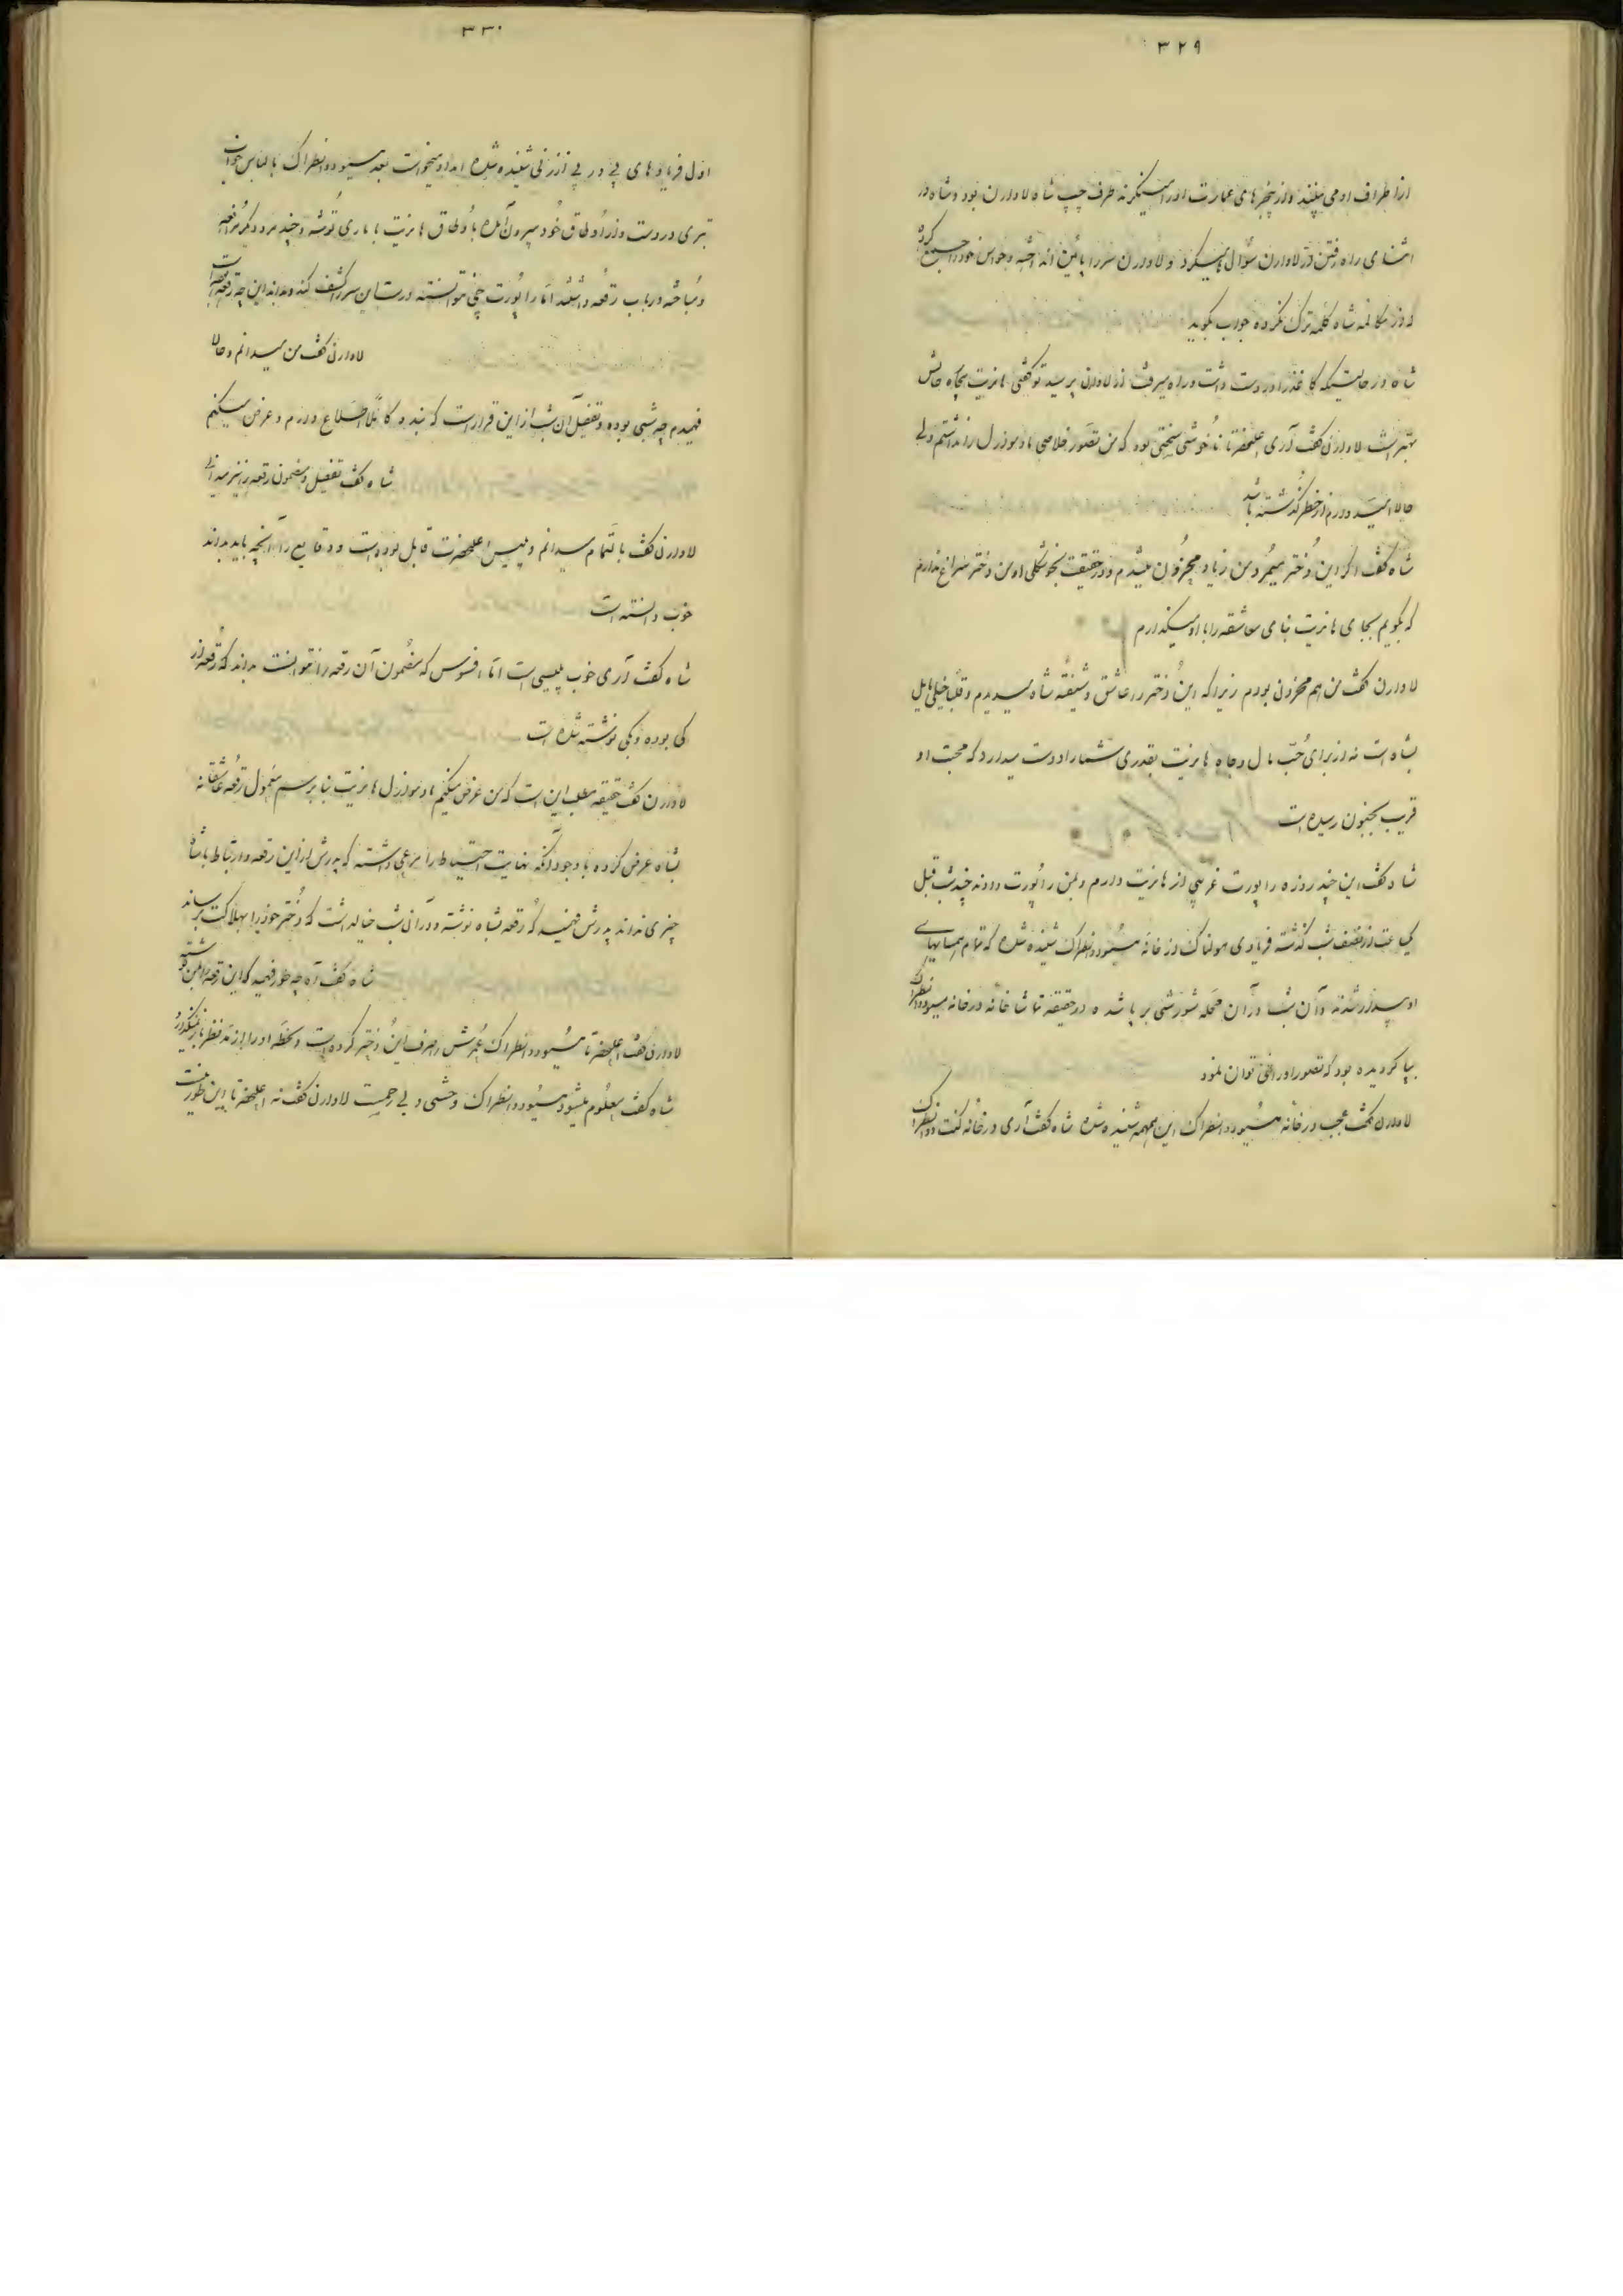 ۳۲۹
از اطراف او می بینند و از پنجره های عمارت او را مینگرند طرف چپ شاه لاوارن بود و شاه در
اثنای راه رفتن از لاوارن سؤال میکرد و لاوارن سر را پائین انداخته و حواس خود را جمع کرده
که از مکالمه شاه کلمه ترک نکرده جواب بگوید
شاه در حالتیکه کاغذ را در دست داشت و راه میرفت از لاوارن پرسید تو گفتی هانریت بیچاره حالش
بهتر است لاوارن گفت آری اعلیحضرتا ناخوشی سختی بود که من تصور خلاصی مادموازل را نداشتم ولی
حالا امید دارم از خطر گذشته باشد
شاه گفت اگر این دختر میمرد من زیاد محزون میشدم و در حقیقت بخوشگلی او من دختر سراغ ندارم
که بگویم بجای هانریت بنای معاشقه را با او میگذارم
لاوارن گفت من هم محزون بودم زیرا که این دختر را عاشق و شیفته شاه میدیدم و قلبا خیلی مایل
بشاه است نه از برای حب مال و جاه هانریت بقدری شما را دوست میدارد که محبت او
قریب بجنون رسیده است
شاه گفت این چند روزه راپورت غریبی از هانریت دارم و بمن راپورت دادند چند شب قبل
یکساعت از نصف شب گذشته فریادی هولناک از خانه مسیو دانطراک شنیده شده که تمام همسایهای
او بیدار شدند و آن شب در آن محله شورشی برپا شده در حقیقة تماشاخانه در خانه مسیو دانطراک
بپا گردیده بود که تصور او را نمی توان نمود
لاوارن گفت عجب در خانه مسیو دانطراک این همهمه شنیده شده شاه گفت آری در خانه کنت دانطراک
۳۳۰
اول فریادهای پی در پی از زنی شنیده شده امداد میخواست بعد مسیو دانطراک با لباس خواب
تبری در دست و از اوطاق خود بیرون آمده باوطاق هانریت با ماری توشه و چند مرد دیگر
و مباحثه در باب رقعه داشتند اما راپورت چی نتوانسته درست این سر را کشف کند و بداند این چه رقعه است
لاوارن گفت من میدانم و حالا
فهمیدم چه شبی بوده و تفصیل آن شب از این قرار است که بنده کاملا اطلاع دارم و عرض میکنم
شاه گفت تفصیل و مضمون رقعه را نیز میدانی
لاوارن گفت بالتمام میدانم و پلیس اعلیحضرت قابل بوده است و وقایع را آنچه باید بداند
خوب دانسته است
شاه گفت آری خوب پلیسی است اما افسوس که مضمون آن رقعه را نتوانست بداند که رقعه از
کی بوده و بکی نوشته شده است
لاوارن گفت حقیقه مطلب این است که من عرض میکنم مادموازل هانریت بنابر رسم معمول رقعه عاشقانه
بشاه عرض کرده با وجود آنکه نهایت احتیاط را مرعی داشته که پدرش از این رقعه و ارتباط با شاه
چیزی نداند پدرش فهمید که رقعه بشاه نوشته و در آن شب خیال داشت که دختر خود را بهلاکت برساند
شاه گفت آه چه طور فهمید که این رقعه را بمن نوشته
لاوارن گفت اعلیحضرتا مسیو دانطراک عمرش را صرف این دختر کرده است و لحظه او را از مد نظر باز نمیگذارد
شاه گفت معلوم میشود مسیو دانطراک وحشی و بی رحمست لاوارن گفت نه اعلیحضرتا این طور نیست